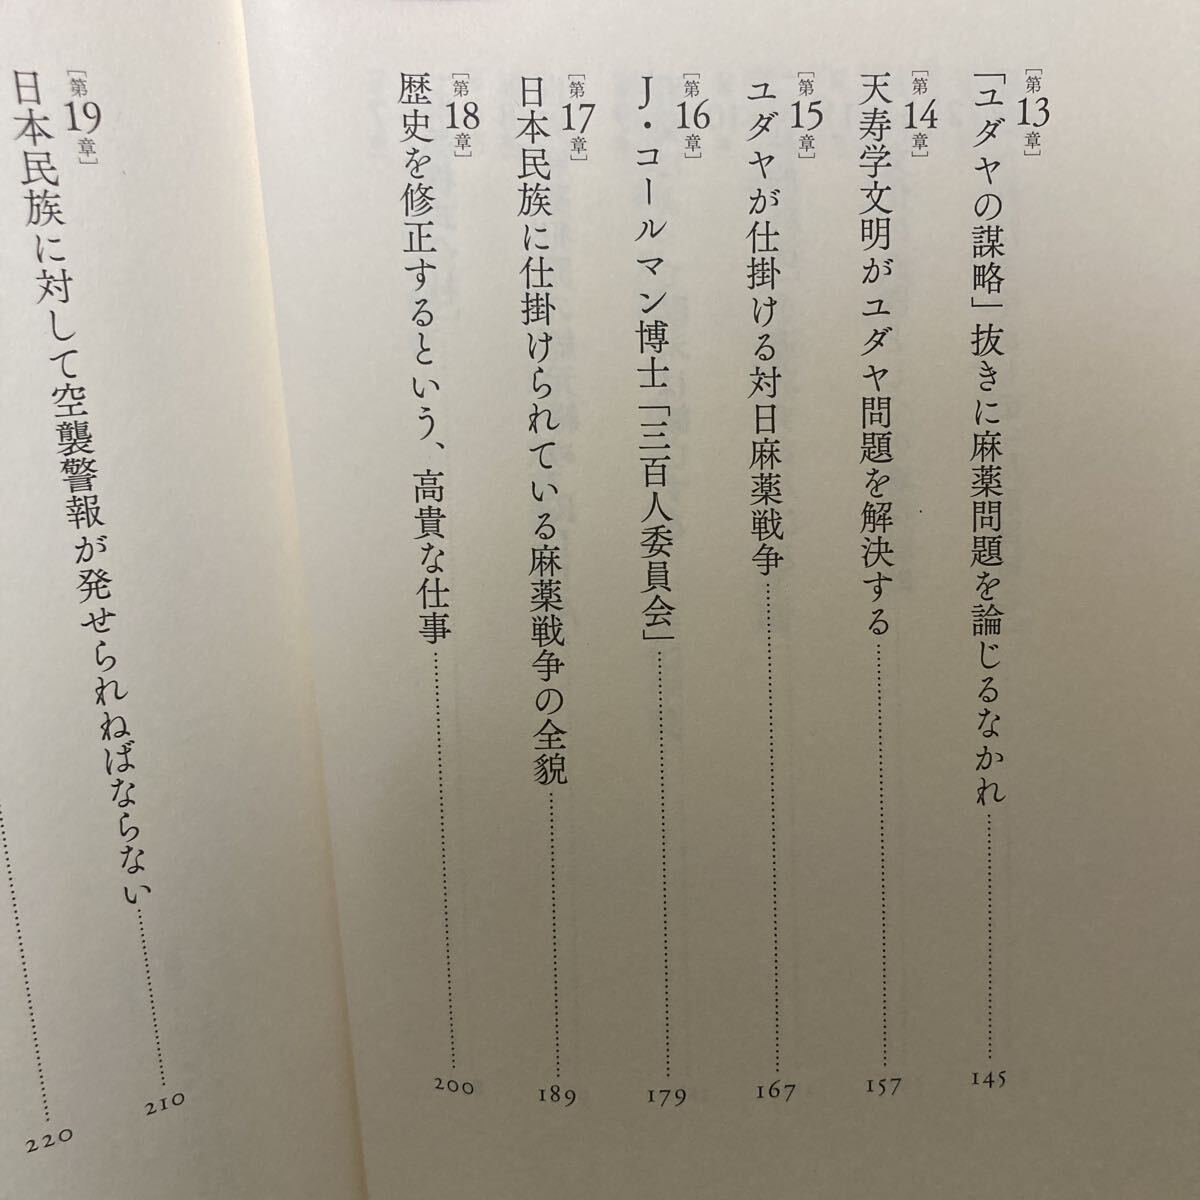 ［第13章］
「ユダヤの謀略」抜きに麻薬問題を論じるなかれ……145
［第14章］
天寿学文明がユダヤ問題を解決する……157
［第15章］
ユダヤが仕掛ける対日麻薬戦争……167
［第16章］
J・コールマン博士「三百人委員会」……179
［第17章］
日本民族に仕掛けられている麻薬戦争の全貌……189
［第18章］
歴史を修正するという、高貴な仕事……200
［第19章］
日本民族に対して空襲警報が発せられねばならない……210
……220